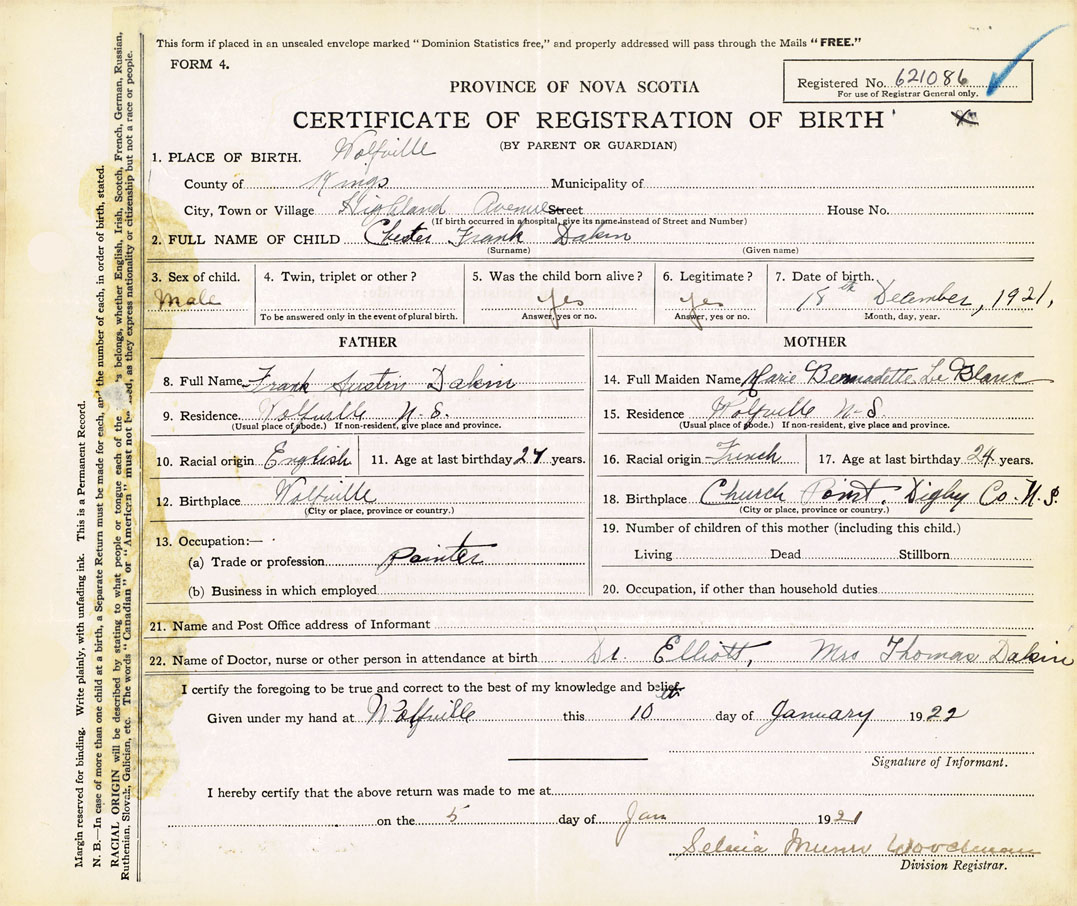 This form if placed in an unsealed envelope marked "Dominion Statistics free," and properly addressed will pass through the Mails "FREE."
FORM 4.
Registered No. 621086
For use of Registrar General only.
PROVINCE OF NOVA SCOTIA
CERTIFICATE OF REGISTRATION OF BIRTH
(BY PARENT OR GUARDIAN)
1. PLACE OF BIRTH. Wolfville
County of Kings Municipality of
City, Town or Village Highland Avenue Street House No.
(If birth occurred in a hospital, give its name instead of Street and Number)
2. FULL NAME OF CHILD Chester Frank Dakin
(Surname) (Given name)
3. Sex of child. 4. Twin, triplet or other? 5. Was the child born alive? 6. Legitimate? 7. Date of birth.
Male Yes Yes 18th December, 1921,
To be answered only in the event of plural birth. Answer, yes or no. Answer, yes or no. Month, day, year.
FATHER MOTHER
8. Full Name Frank Austin Dakin 14. Full Maiden Name Marie Bernadette Le Blanc
9. Residence Wolfville N.S. 15. Residence Wolfville N.S.
(Usual place of abode.) If non-resident, give place and province. (Usual place of abode.) If non-resident, give place and province.
10. Racial origin English 11. Age at last birthday 27 years. 16. Racial origin French 17. Age at last birthday 24 years.
12. Birthplace Wolfville 18. Birthplace Church Point, Digby Co. N.S.
(City or place, province or country.) (City or place, province or country.)
13. Occupation:— 19. Number of children of this mother (including this child.)
(a) Trade or profession Painter Living Dead Stillborn
(b) Business in which employed 20. Occupation, if other than household duties
21. Name and Post Office address of Informant
22. Name of Doctor, nurse or other person in attendance at birth Dr. Elliott, Mrs Thomas Dakin
I certify the foregoing to be true and correct to the best of my knowledge and belief.
Given under my hand at Wolfville this 10 day of January 1922
Signature of Informant.
I hereby certify that the above return was made to me at
on the 5 day of Jan 1921
Selina Munro Woodman
Division Registrar.
Margin reserved for binding. Write plainly, with unfading ink. This is a Permanent Record.
N. B.—In case of more than one child at a birth, a Separate Return must be made for each, and the number of each, in order of birth, stated.
RACIAL ORIGIN will be described by stating to what people or tongue each of the belongs, whether English, Irish, Scotch, French, German, Russian,
Ruthenian, Slovak, Galician, etc. The words "Canadian" or "American" must not be used, as they express nationality or citizenship but not a race or people.